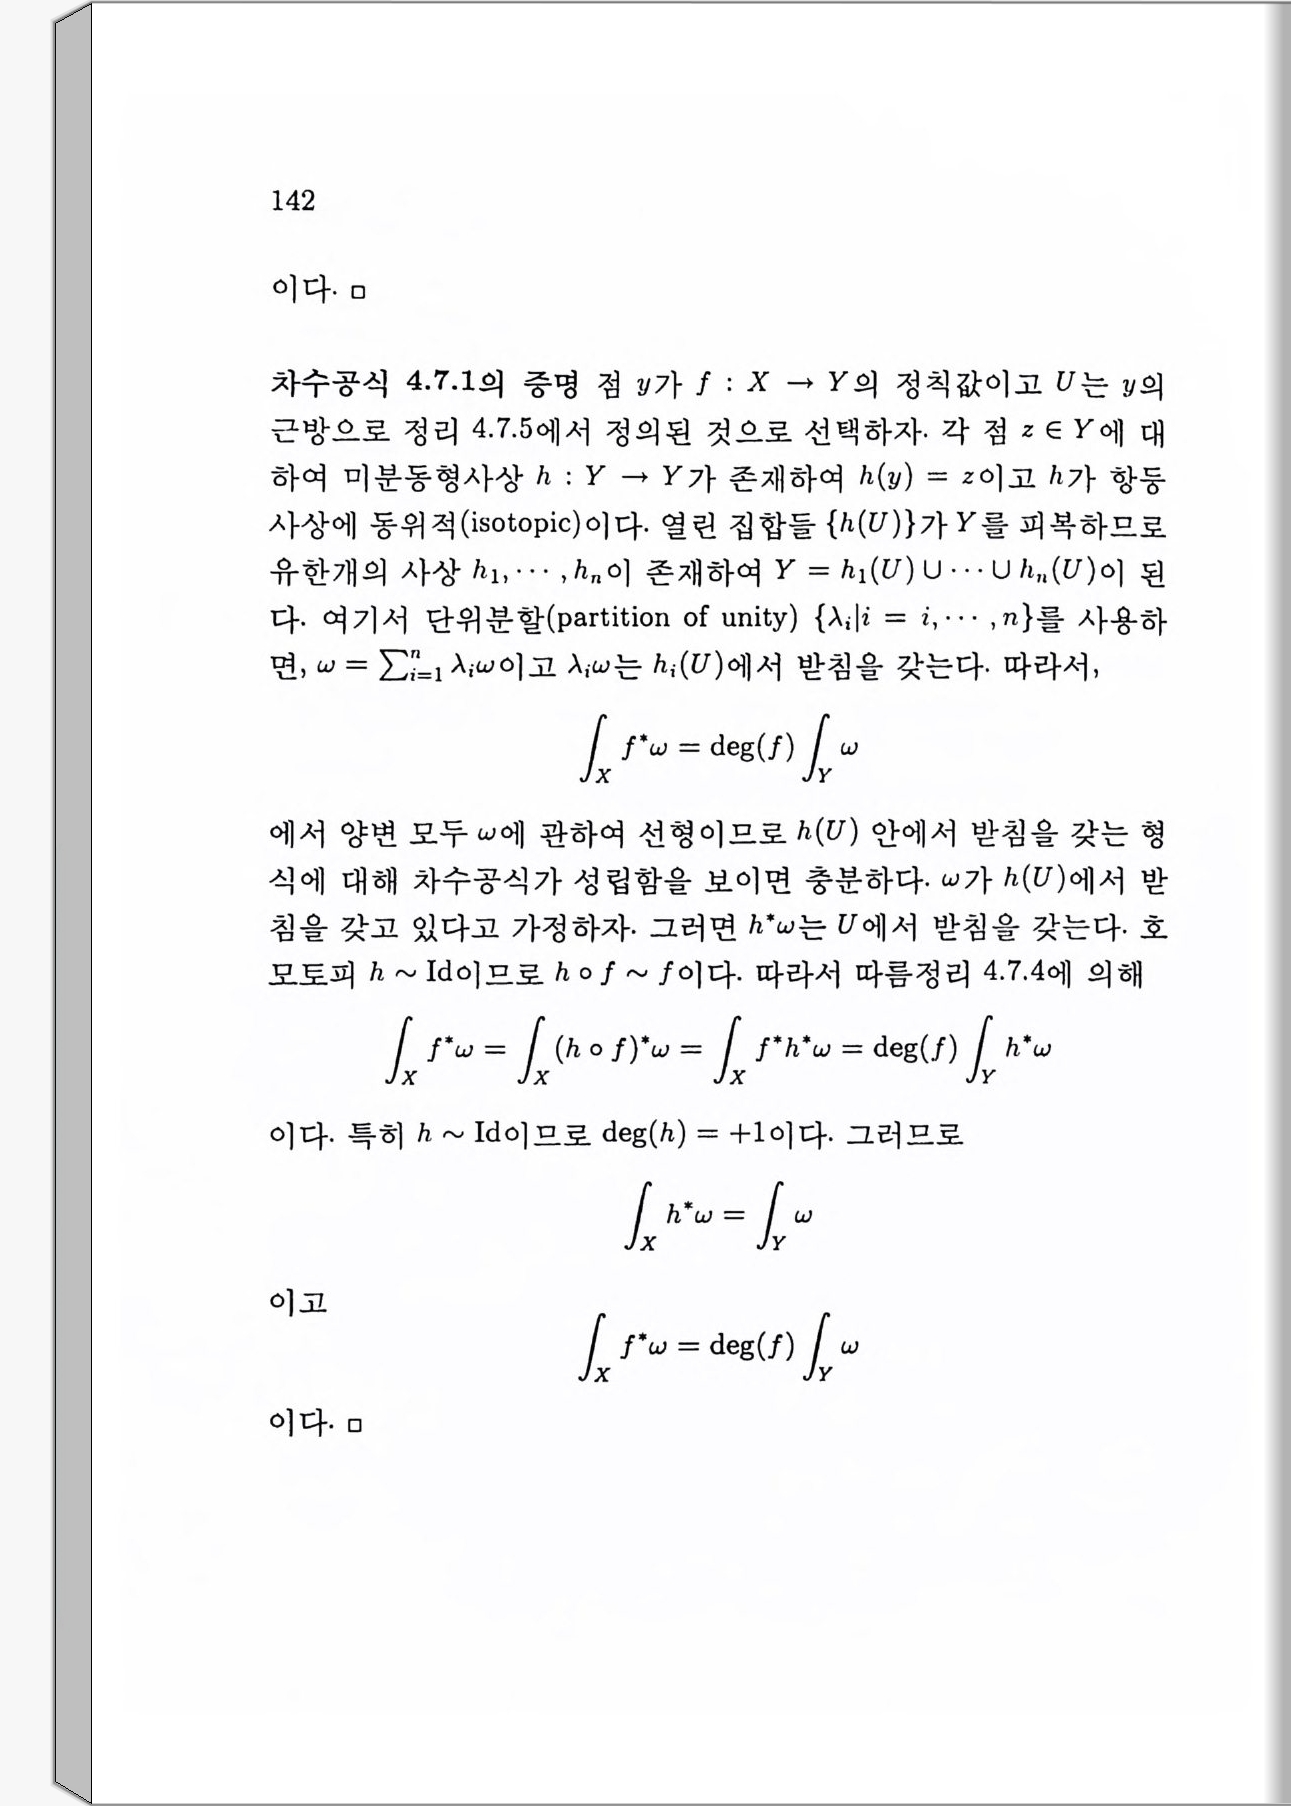 142
이다. □
차수공식 4.7.1의 증명 점 y가 f : X → Y의 정칙값이고 U는 y의
근방으로 정리 4.7.5에서 정의된 것으로 선택하자. 각 점 z ∈ Y에 대
하여 미분동형사상 h : Y → Y가 존재하여 h(y) = z이고 h가 항등
사상에 동위적(isotopic)이다. 열린 집합들 {h(U)}가 Y를 피복하므로
유한개의 사상 h₁, ⋯ , hₙ이 존재하여 Y = h₁(U) ∪ ⋯ ∪ hₙ(U)이 된
다. 여기서 단위분할(partition of unity) {λᵢ|i = i, ⋯ , n}를 사용하
면, ω = ∑ⁿᵢ₌₁ λᵢω이고 λᵢω는 hᵢ(U)에서 받침을 갖는다. 따라서,
∫_X f*ω = deg(f) ∫_Y ω
에서 양변 모두 ω에 관하여 선형이므로 h(U) 안에서 받침을 갖는 형
식에 대해 차수공식가 성립함을 보이면 충분하다. ω가 h(U)에서 받
침을 갖고 있다고 가정하자. 그러면 h*ω는 U에서 받침을 갖는다. 호
모토피 h ∼ Id이므로 h ∘ f ∼ f이다. 따라서 따름정리 4.7.4에 의해
∫_X f*ω = ∫_X (h ∘ f)*ω = ∫_X f*h*ω = deg(f) ∫_Y h*ω
이다. 특히 h ∼ Id이므로 deg(h) = +1이다. 그러므로
∫_X h*ω = ∫_Y ω
이고
∫_X f*ω = deg(f) ∫_Y ω
이다. □